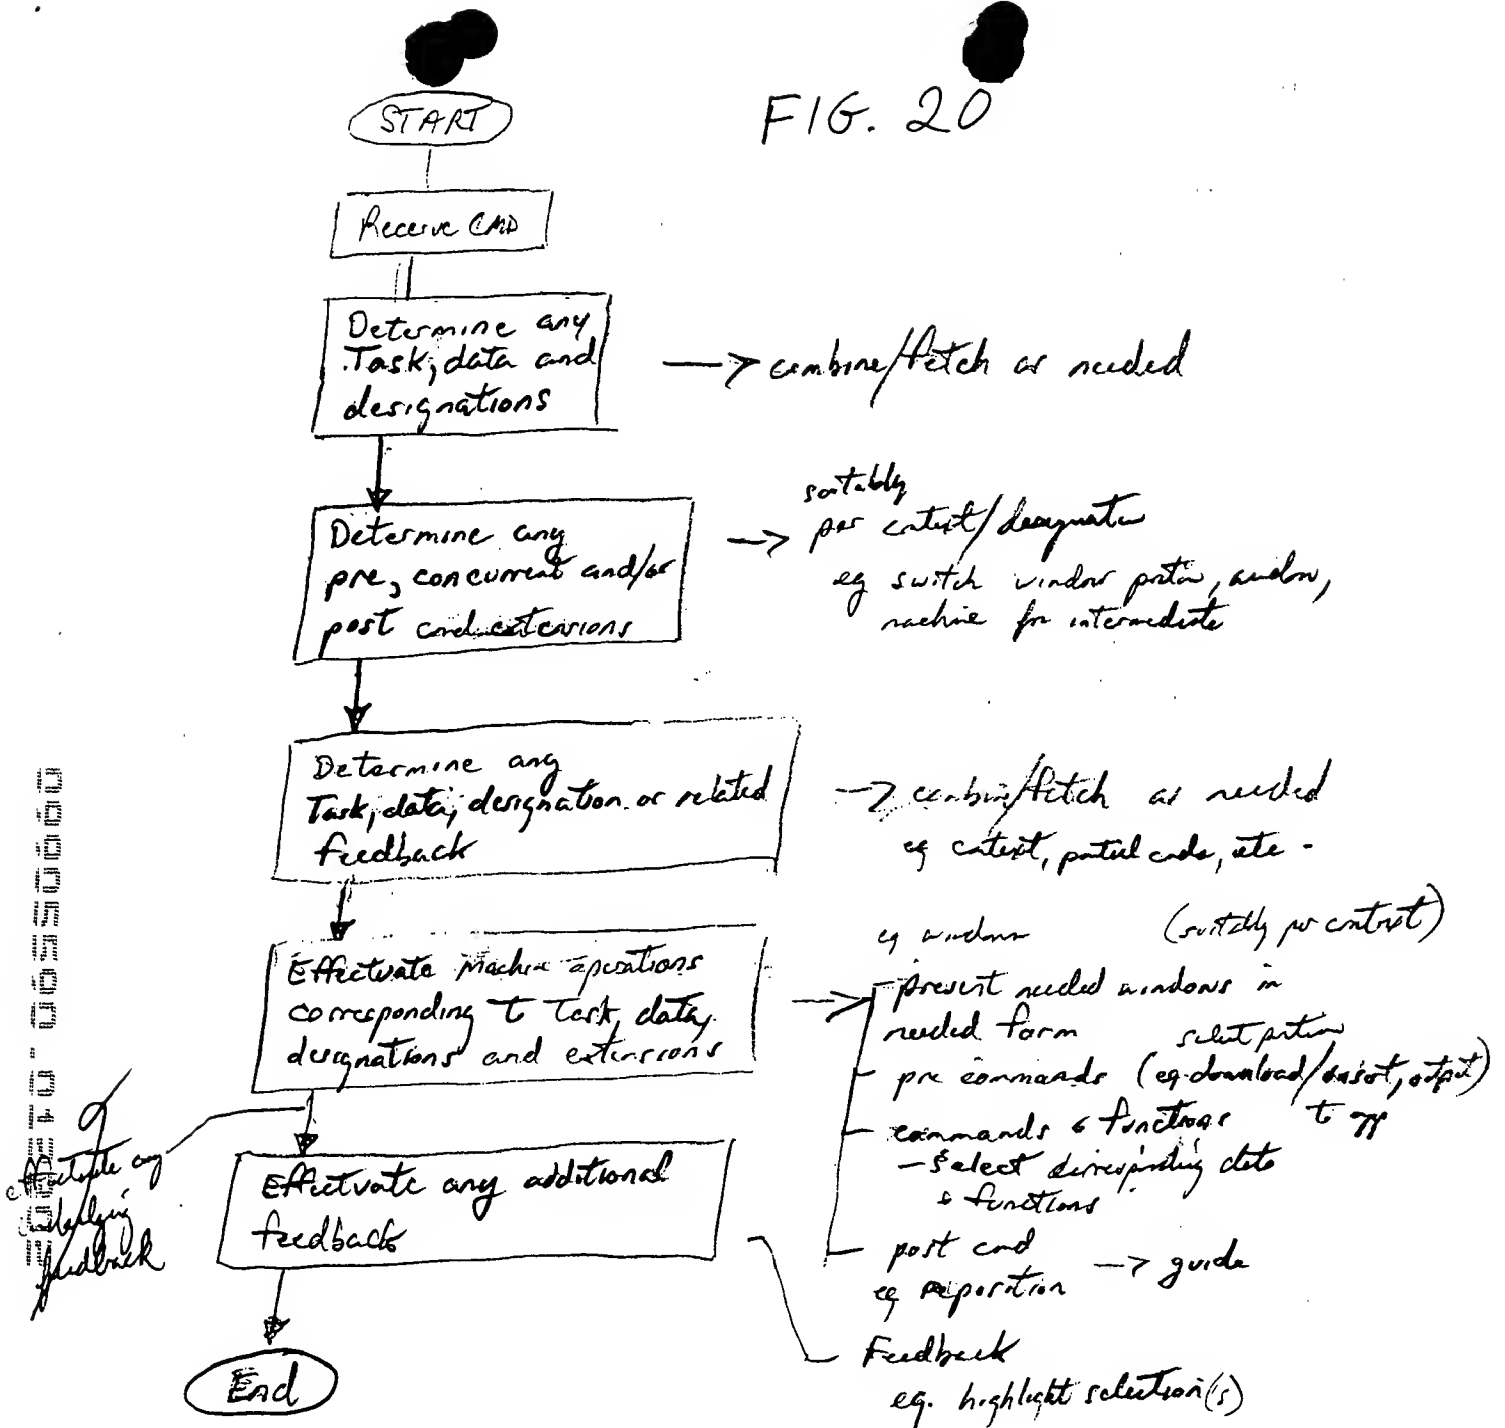 FIG. 20
START
Receive CMD
Determine any
Task, data and
designations
→ combine/fetch as needed
Determine any
pre, concurrent and/or
post cmd extensions
suitably
→ per context/designation
eg switch window portion, window,
machine for intermediate
Determine any
Task, data, designation or related
feedback
→ combine/fetch as needed
eg context, partial cmds, etc.
Effectuate Machine operations
corresponding to Task, data,
designations and extensions
eg windows (suitably per context)
- present needed windows in
needed form
select portion
- pre commands (eg download/insert, output)
to app
- commands & functions
- select corresponding data
& functions
- post cmd → guide
eg reposition
effectuate any
feedback
Effectuate any additional
feedback
Feedback
eg. highlight selection(s)
End